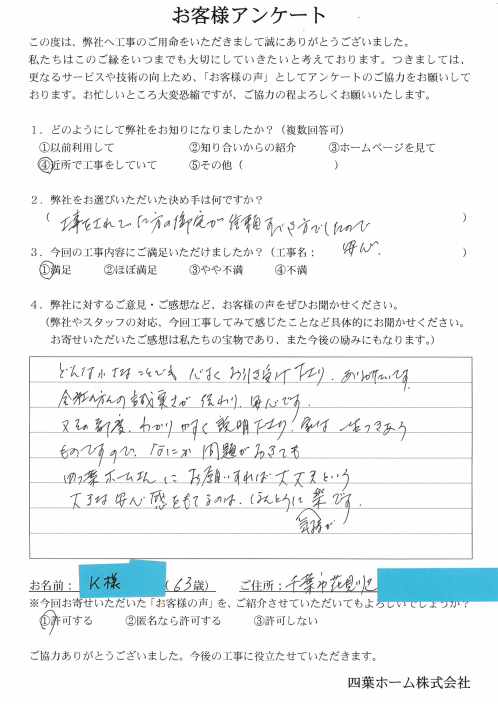 お客様アンケート
この度は、弊社へ工事のご用命をいただきまして誠にありがとうございました。
私たちはこのご縁をいつまでも大切にしていきたいと考えております。つきましては、
更なるサービスや技術の向上ため、「お客様の声」としてアンケートのご協力をお願いして
おります。お忙しいところ大変恐縮ですが、ご協力の程よろしくお願いいたします。
1．どのようにして弊社をお知りになりましたか？（複数回答可）
①以前利用して ②知り合いからの紹介 ③ホームページを見て
④近所で工事をしていて ⑤その他（ ）
2．弊社をお選びいただいた決め手は何ですか？
（工事をされていた方の御宅が信頼すべき方でしたので 安心。）
3．今回の工事内容にご満足いただけましたか？（工事名： ）
①満足 ②ほぼ満足 ③やや不満 ④不満
4．弊社に対するご意見・ご感想など、お客様の声をぜひお聞かせください。
（弊社やスタッフの対応、今回工事してみて感じたことなど具体的にお聞かせください。
お寄せいただいたご感想は私たちの宝物であり、また今後の励みにもなります。）
どんな小さなことでも 心よく お引き受け下さり、ありがたいです。
全社の方々の誠実さが伝わり、安心です。
又その都度、わかりやすく説明下さり、家は 一生つきあう
ものですので、なにか 問題がおきても
四つ葉ホームさんに お願いすれば大丈夫という
大きな安心感をもてるのは、ほんとうに 気持が 楽です。
お名前： K様 （63歳） ご住所：千葉市花見川区
※今回お寄せいただいた「お客様の声」を、ご紹介させていただいてもよろしいでしょうか？
①許可する ②匿名なら許可する ③許可しない
ご協力ありがとうございました。今後の工事に役立たせていただきます。
四葉ホーム株式会社